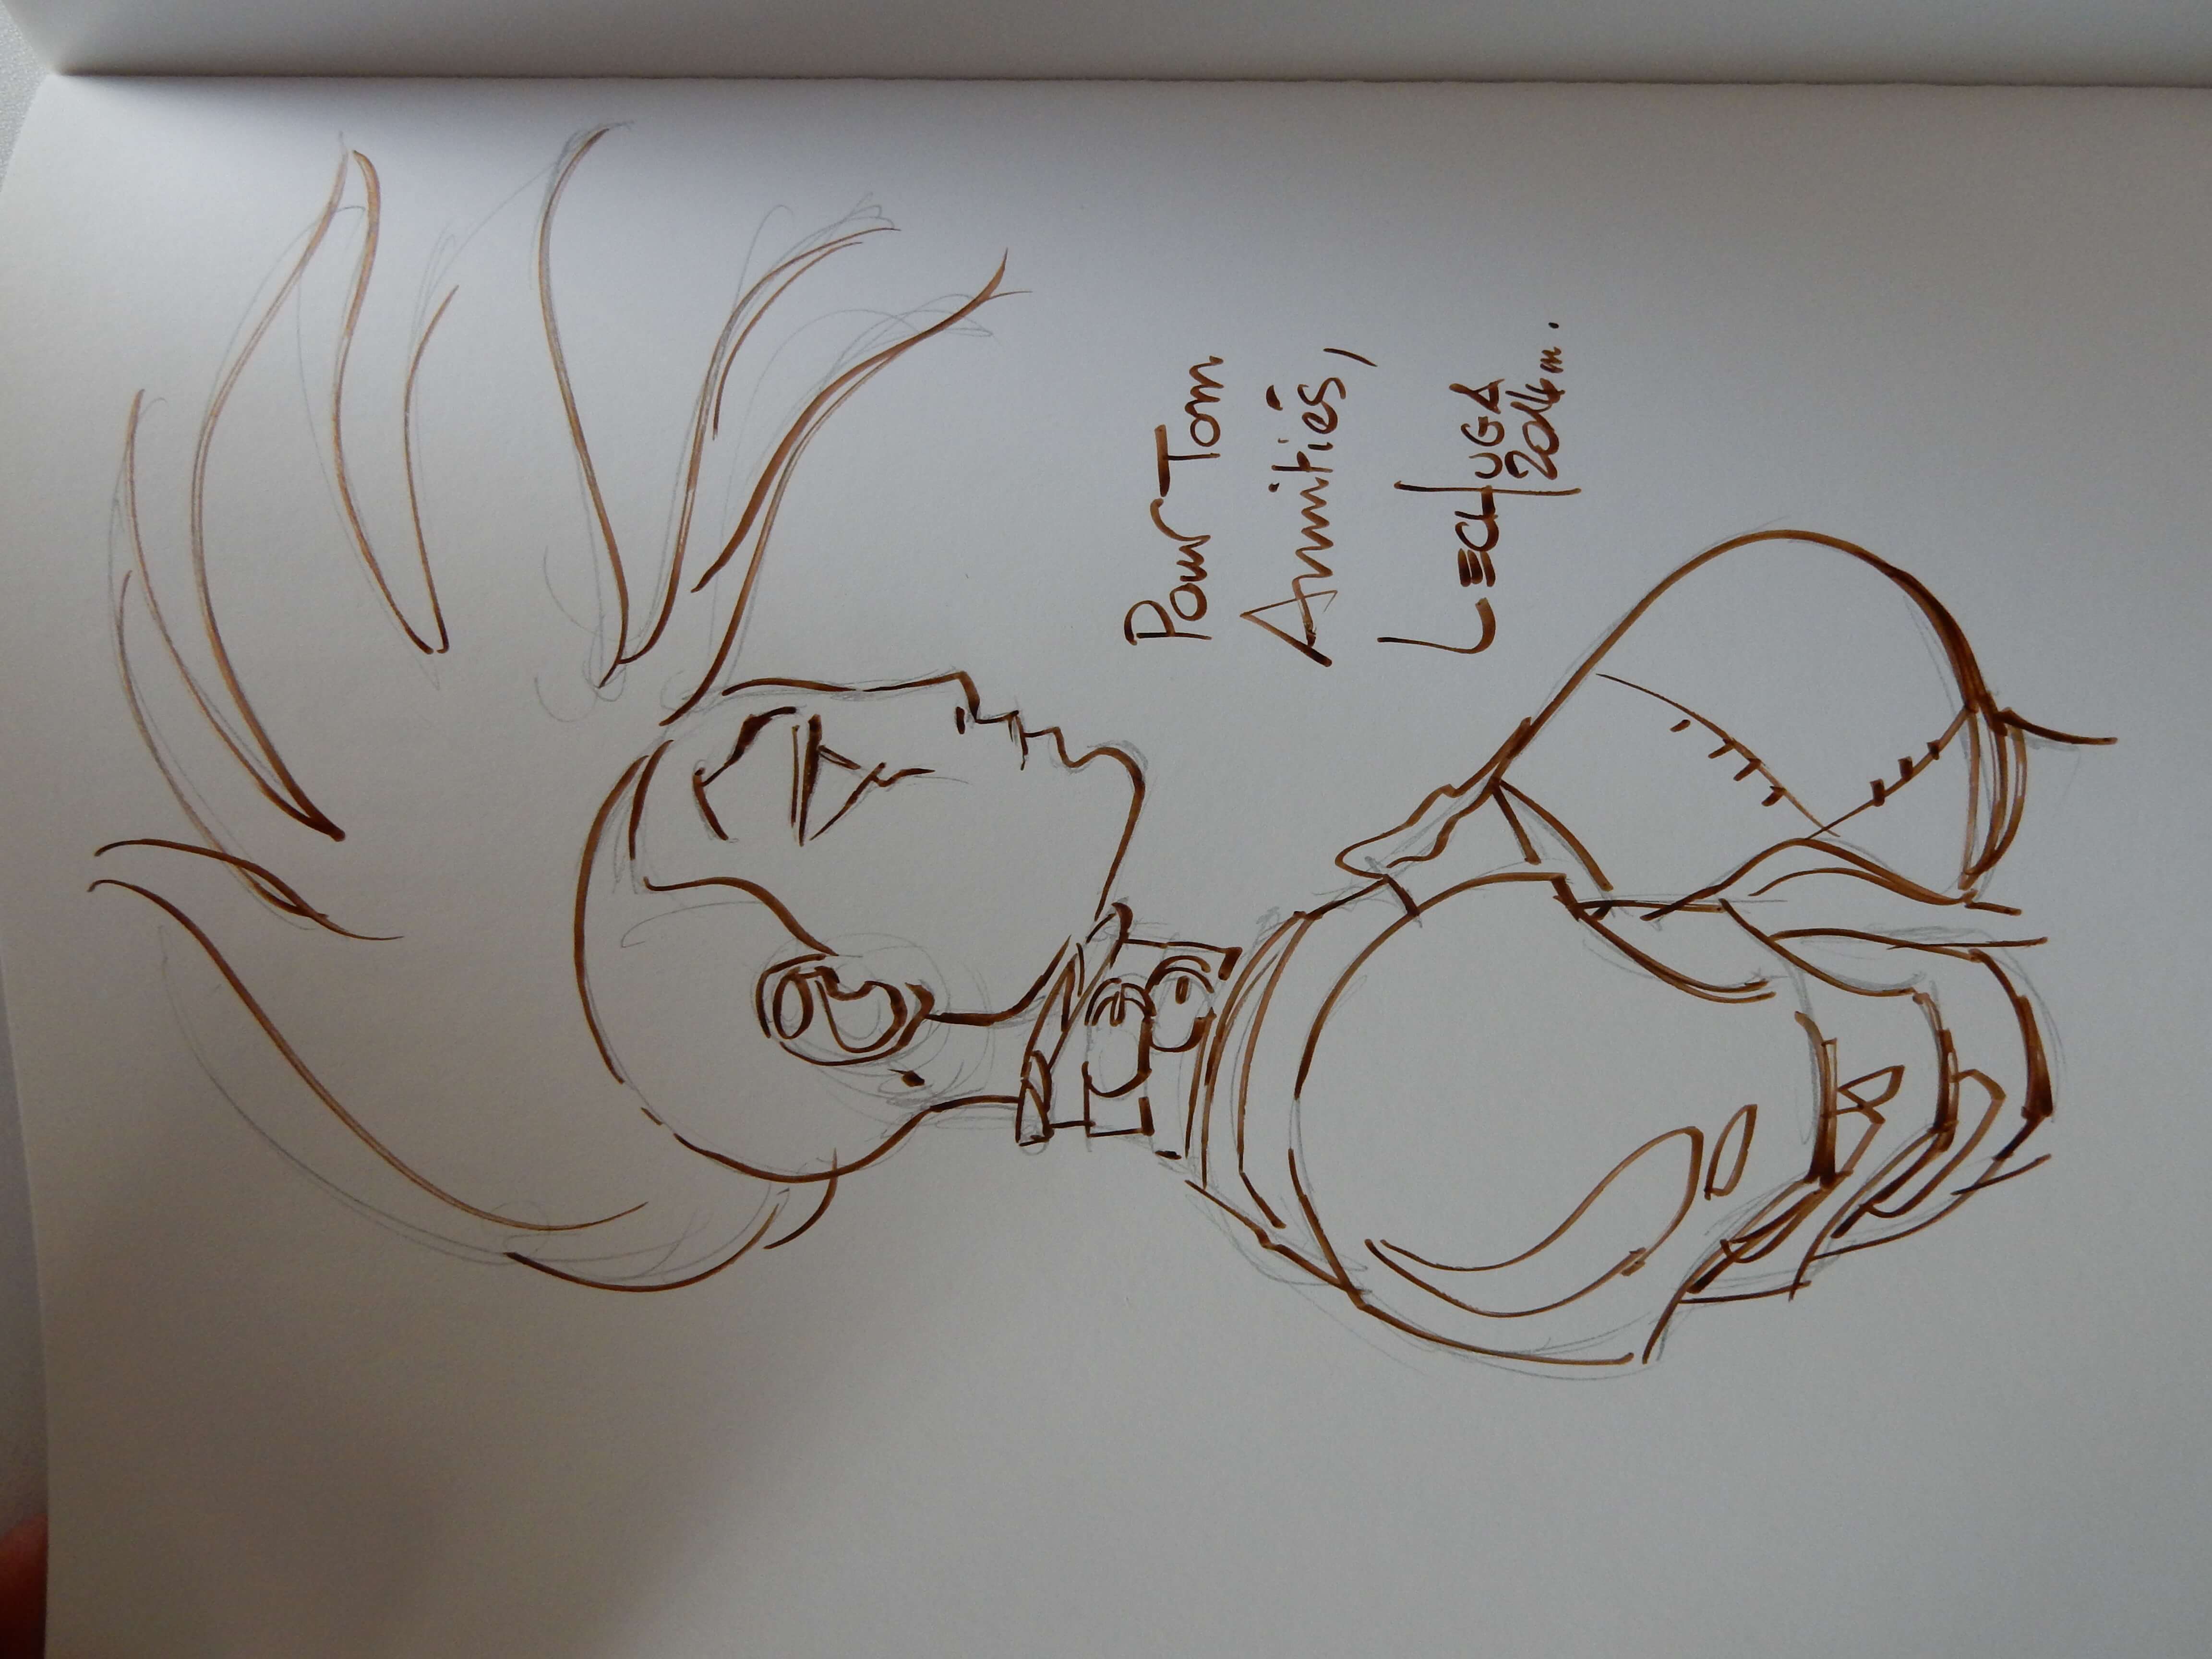 Pour Tom
Amitiés,
LECHUGA
2014